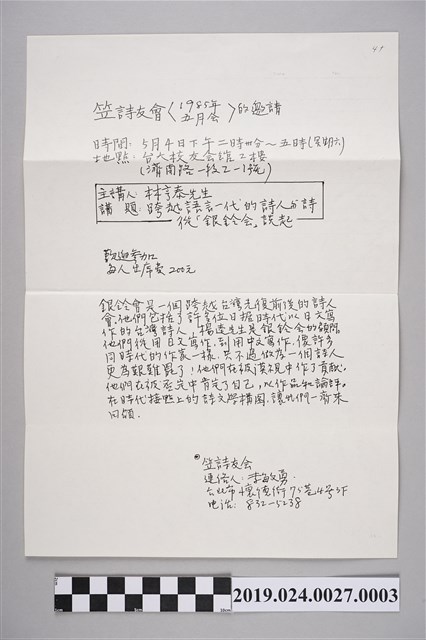 47
笠詩友會〈1985年五月会〉的邀請
時間: 5月4日下午二時卅分～五時(星期六)
地點: 台大校友会館2樓
(濟南路一段2-1號)
主講人: 林亨泰先生
講 題: 跨越語言一代的詩人与詩
從「銀鈴会」談起
歡迎參加
每人出席費200元
銀鈴會是一個跨越台灣光復前後的詩人
會,他們包括了許多位日據時代以日文寫
作的台灣詩人,楊逵先生是銀鈴会的顧問。
他們從用日文寫作,到用中文寫作,像許多
同時代的作家一樣,只不過做為一個詩人
更為艱難罷了!他們在被漠視中作了貢獻,
他們在被否定中肯定了自己,以作品和論評。
在時代接點上的詩文學構圖,讓我們一齊來
回顧。
笠詩友会
連絡人: 李敏勇
台北市懷德街75巷4号3F
电话: 832-5238
2019.024.0027.0003